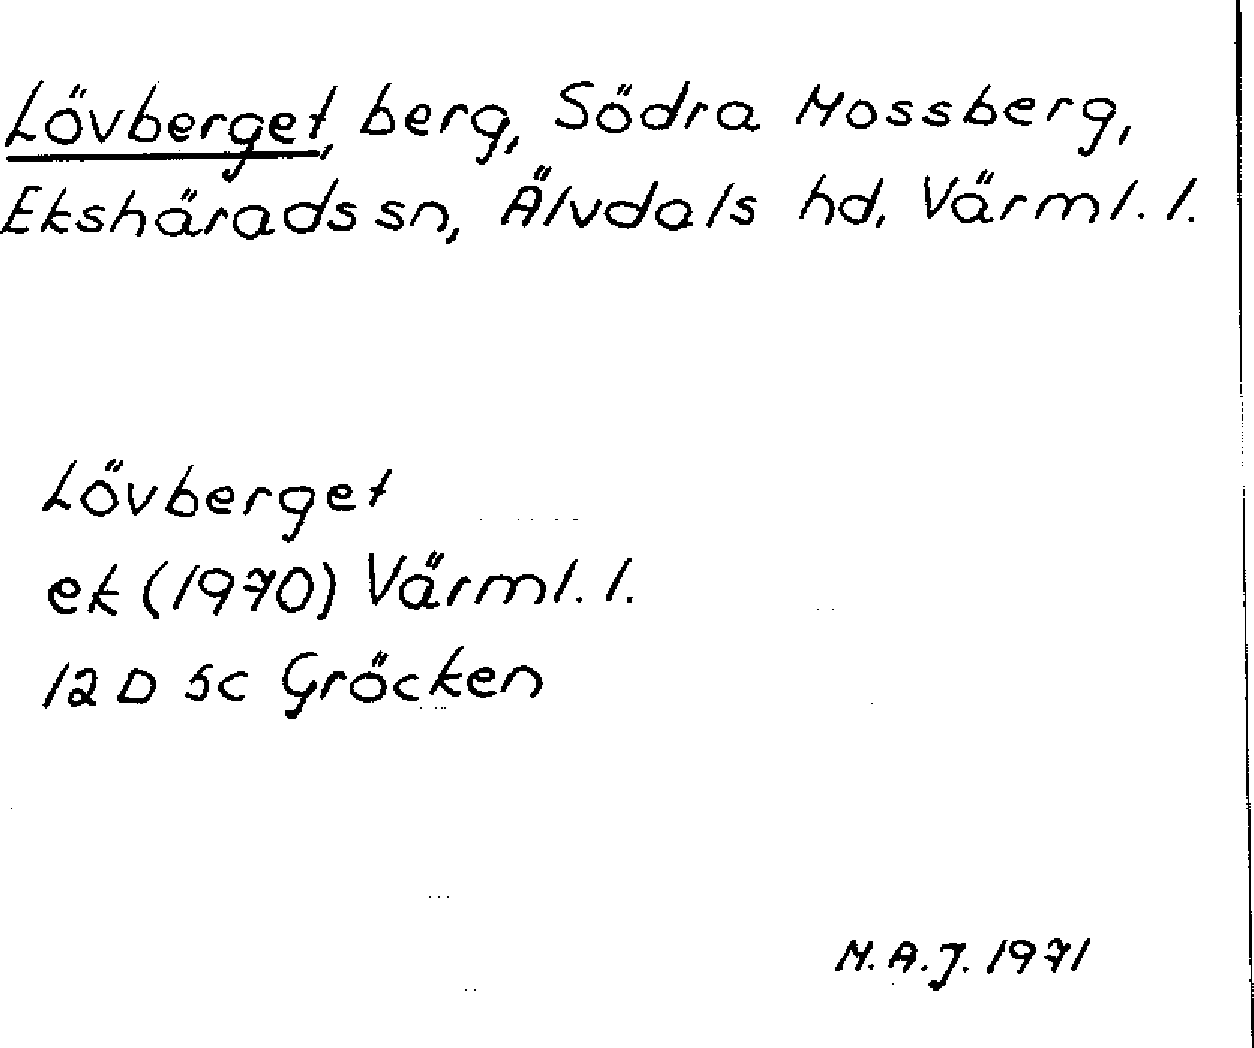 Lövberget, berg, Södra Mossberg,
Ekshärads sn, Älvdals hd, Värml. l.
Lövberget
ek (1970) Värml. l.
12 D 5c Gröcken
M. A. J. 1971